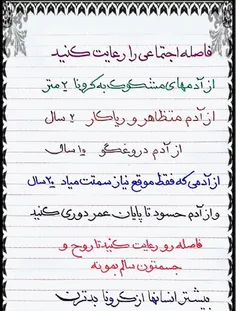 فاصله اجتماعی را رعایت کنید
از آدمهای مشکوک به کرونا ۲ متر
از آدم متظاهر و ریاکار ۲ سال
از آدم دروغگو ۱۰ سال
از آدمی که فقط موقع نیاز سمتت میاد ۲۰ سال
و از آدم حسود تا پایان عمر دوری کنید
فاصله رو رعایت کنید تا روح و
جسمتون سالم بمونه
بیشتر انسانها از کرونا بدترن